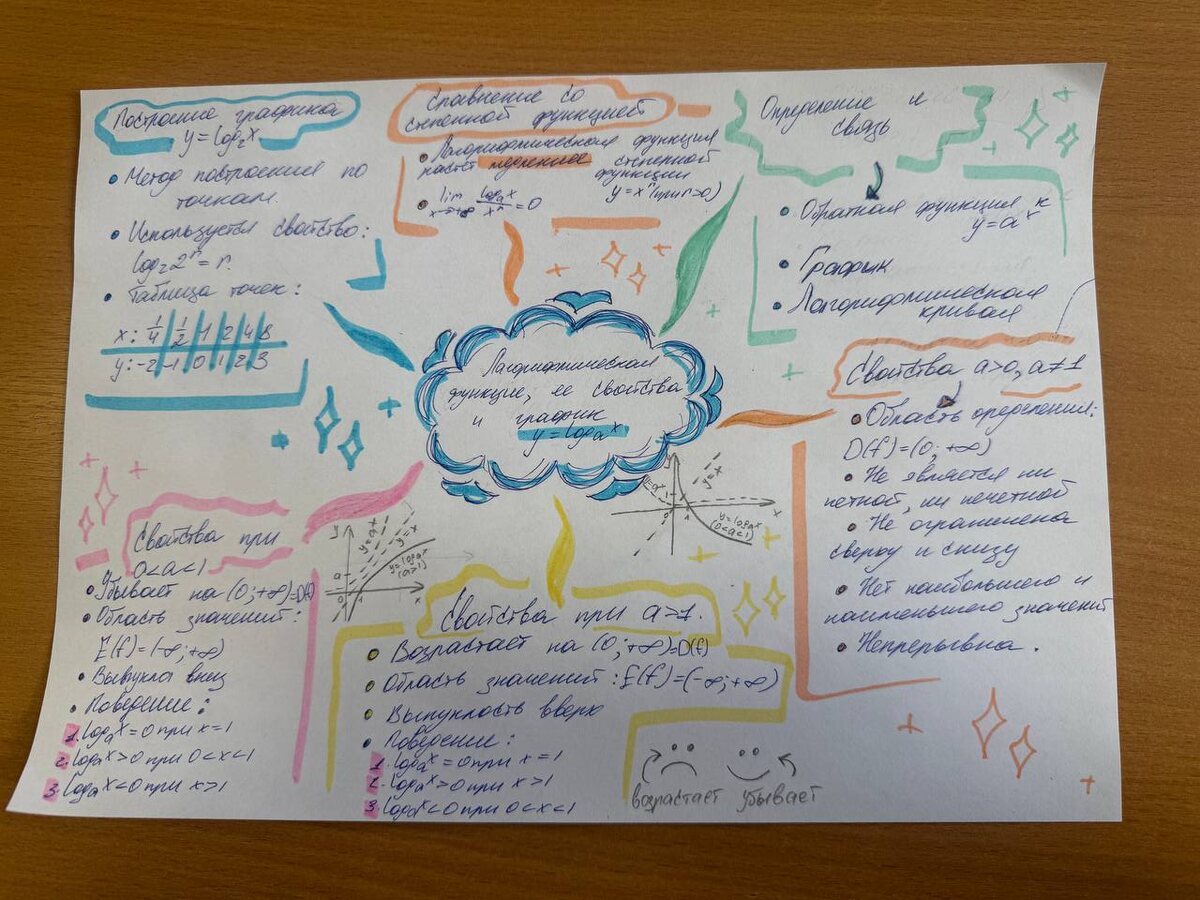 Построение графика
y = log₂x
• Метод построения по
точкам.
• Используется свойство:
log₂2ʳ = r.
• Таблица точек:
x: 1/4 | 1/2 | 1 | 2 | 4 | 8
y: -2 | -1 | 0 | 1 | 2 | 3
Сравнение со
степенной функцией
• Логарифмическая функция
растет медленнее степенной
функции
y = xʳ (при r>0)
• lim logₐx / xʳ = 0
x→+∞
Определение и
связь
• Обратная функция к
y = aˣ
• График
• Логорифмическая
кривая
Логарифмическая
функция, ее свойства
и график
y = logₐx
Свойства a>0, a≠1
• Область определения:
D(f) = (0; +∞)
• Не является ни
четной, ни нечетной
• Не ограничена
сверху и снизу
• Нет наибольшего и
наименьшего значений
• Непрерывна.
Свойства при
0<a<1
• Убывает на (0; +∞)=D(f)
• Область значений:
E(f) = (-∞; +∞)
• Выпукла вниз
• Поведение:
1. logₐx = 0 при x = 1
2. logₐx > 0 при 0<x<1
3. logₐx < 0 при x>1
y
y=aˣ
y=x
y=logₐx
(a>1)
a
1
0
1
x
y
y=x
y=aˣ
1
0
1
x
y=logₐx
(0<a<1)
Свойства при a>1.
• Возрастает на (0; +∞)=D(f)
• Область значений: E(f) = (-∞; +∞)
• Выпуклость вверх
• Поведение:
1. logₐx = 0 при x = 1
2. logₐx > 0 при x>1
3. logₐx < 0 при 0<x<1
возрастает убывает